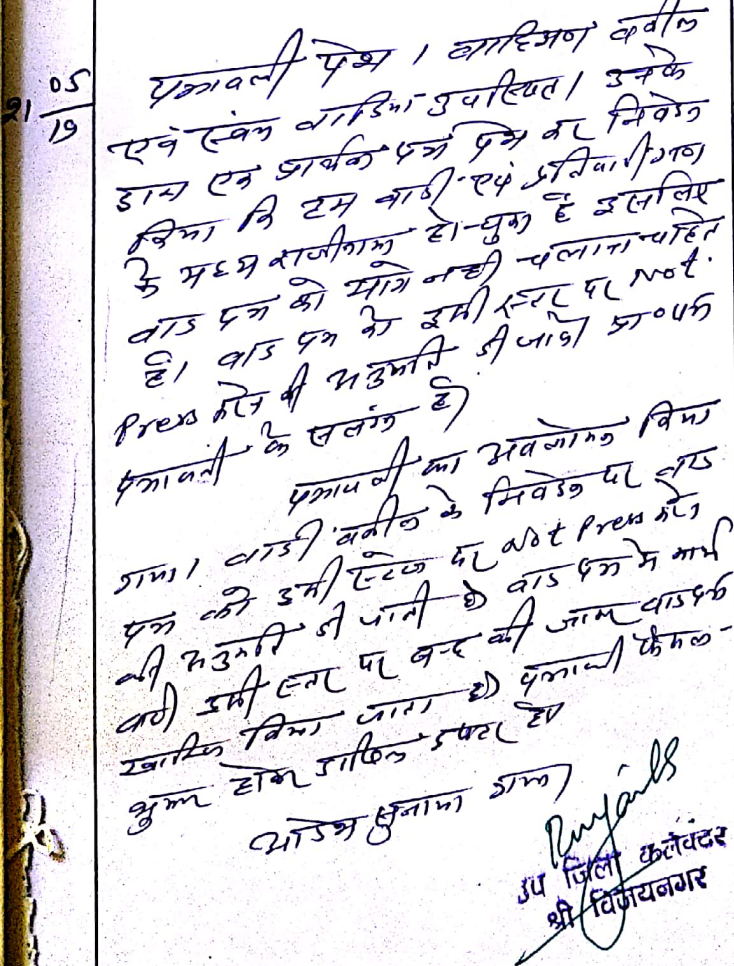 21 05/19
पत्रावली पेश । वादिगण वकील
एवं स्वंय वादिया उपस्थित। उनके
द्वारा एक प्रार्थना पत्र पेश कर निवेदन
किया कि हम वादी एवं प्रतिवादीगण
के मध्य राजीनामा हो चुका है इसलिए
वाद पत्र को आगे नही चलाना चाहते
है। वाद पत्र को इसी स्तर पर Not
Press करने की अनुमति दी जावे। प्रा० पत्र
पत्रावली के सलंग्न है।
पत्रावली का अवलोकन किया
गया। वादी वकील के निवेदन पर वाद
पत्र को इसी स्टेज पर Not Press करने
की अनुमति दी जाती है। वाद पत्र मे
इसी स्तर पर बन्द की जाकर वाद पत्र
खारिज किया जाता है। पत्रावली फैसल
शुमार होकर दाखिल दफ्तर हो।
आदेश सुनाया गया।
उप जिला कलेक्टर
श्री विजयनगर